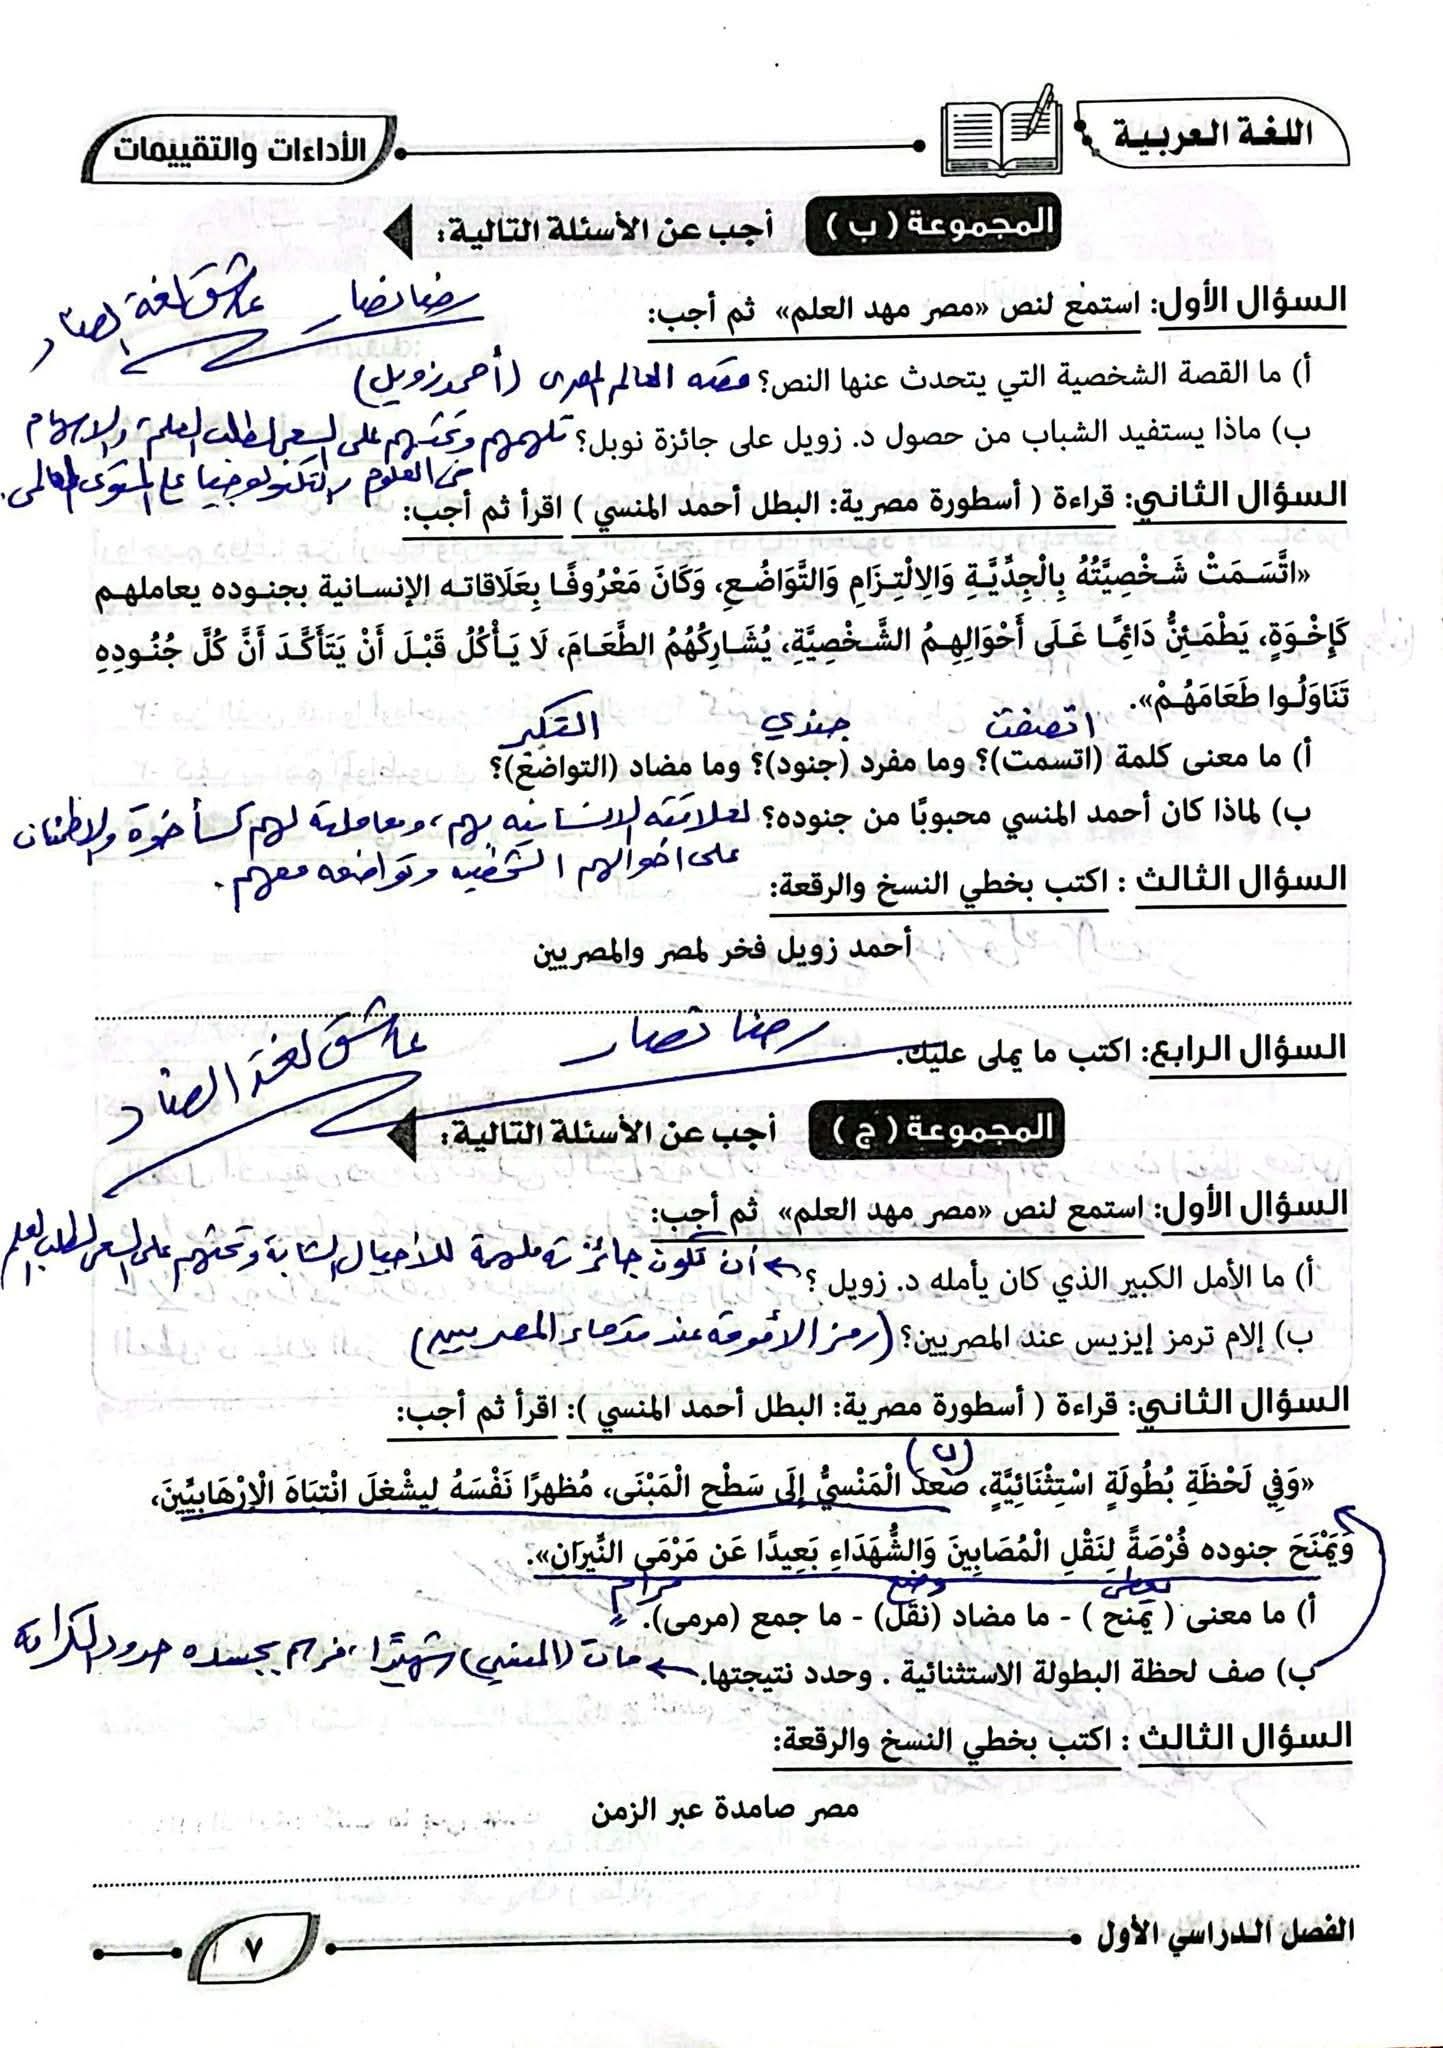 اللغة العربية
الأداءات والتقييمات
المجموعة ( ب ) أجب عن الأسئلة التالية:
السؤال الأول: استمع لنص «مصر مهد العلم» ثم أجب:
رضا نصار عاشق لغة الضاد
أ) ما القصة الشخصية التي يتحدث عنها النص؟ قصة العالم المصرى (أحمد زويل)
ب) ماذا يستفيد الشباب من حصول د. زويل على جائزة نوبل؟ تلهمهم وتحثهم على السعى لطلب العلم والإسهام
فى العلوم والتكنولوجيا على المستوى العالمى.
السؤال الثاني: قراءة ( أسطورة مصرية: البطل أحمد المنسي ) اقرأ ثم أجب:
«اتَّسَمَتْ شَخْصِيَّتُهُ بِالْجِدِّيَّةِ وَالِالْتِزَامِ وَالتَّوَاضُعِ، وَكَانَ مَعْرُوفًا بِعَلَاقاته الإنسانية بجنوده يعاملهم
كَإِخْوَةٍ، يَطْمَئِنُّ دَائِمًا عَلَى أَحْوَالِهِمُ الشَّخْصِيَّةِ، يُشَارِكُهُمُ الطَّعَامَ، لَا يَأْكُلُ قَبْلَ أَنْ يَتَأَكَّدَ أَنَّ كُلَّ جُنُودِهِ
تَنَاوَلُوا طَعَامَهُمْ».
اتصفت جندي التكبر
أ) ما معنى كلمة (اتسمت)؟ وما مفرد (جنود)؟ وما مضاد (التواضع)؟
ب) لماذا كان أحمد المنسي محبوبًا من جنوده؟ لعلاقته الإنسانية بهم، ومعاملته لهم كأخوة والاطمئنان
على أحوالهم الشخصية وتواضعه معهم.
السؤال الثالث : اكتب بخطي النسخ والرقعة:
أحمد زويل فخر لمصر والمصريين
السؤال الرابع: اكتب ما يملى عليك.
رضا نصار عاشق لغة الضاد
المجموعة ( ج ) أجب عن الأسئلة التالية:
السؤال الأول: استمع لنص «مصر مهد العلم» ثم أجب:
أ) ما الأمل الكبير الذي كان يأمله د. زويل ؟ أن تكون جائزته ملهمة للأجيال الشابة وتحثهم على السعى لطلب العلم
ب) إلام ترمز إيزيس عند المصريين؟ (رمز الأمومة عند قدماء المصريين)
السؤال الثاني: قراءة ( أسطورة مصرية: البطل أحمد المنسي ): اقرأ ثم أجب:
(ب)
«وَفِي لَحْظَةِ بُطُولَةٍ اسْتِثْنَائِيَّةٍ، صَعَدَ الْمَنْسِيُّ إِلَى سَطْحِ الْمَبْنَى، مُظهرًا نَفْسَهُ لِيشْغلَ انْتِبَاهَ الْإِرْهَابِيِّينَ،
وَيَمْنَحَ جنوده فُرْصَةً لِنَقْلِ الْمُصَابِينَ وَالشُّهَدَاءِ بَعِيدًا عَن مَرْمَى النِّيرَانِ».
يعطى وضع مرامٍ
أ) ما معنى ( يمنح ) - ما مضاد (نقل) - ما جمع (مرمى).
ب) صف لحظة البطولة الاستثنائية . وحدد نتيجتها. مات (المنسي) شهيدًا، فرسم بجسده حدود الكرامة
السؤال الثالث : اكتب بخطي النسخ والرقعة:
مصر صامدة عبر الزمن
الفصل الدراسي الأول
٧